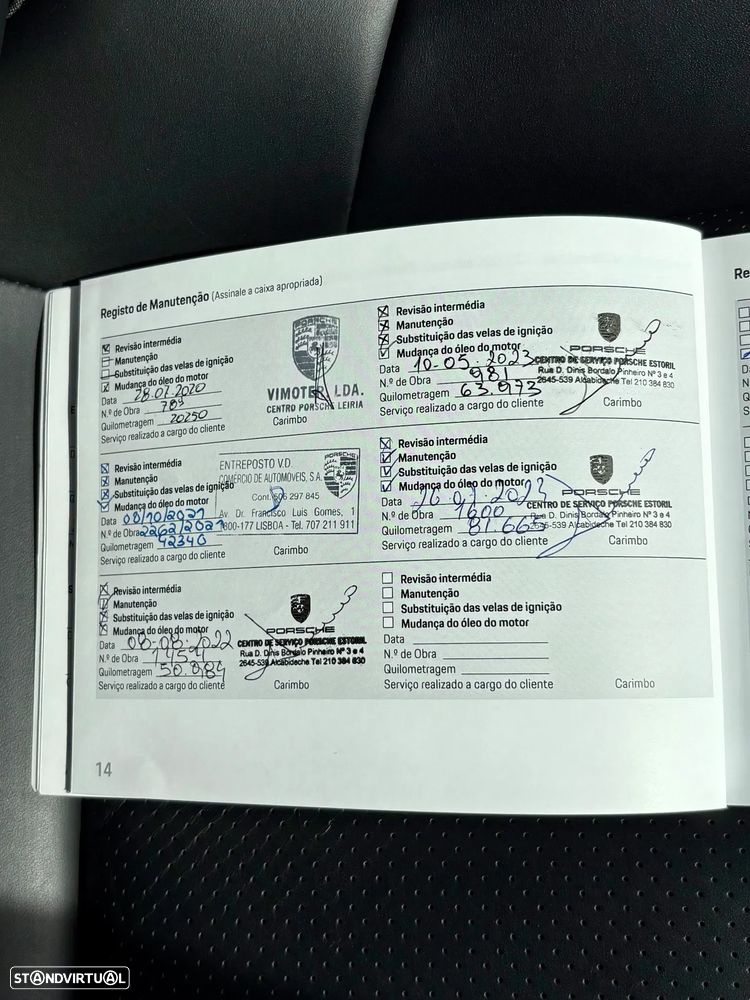 Registo de Manutenção (Assinale a caixa apropriada)
Revisão intermédia
Manutenção
Substituição das velas de ignição
Mudança do óleo do motor
Data 28.07.2020
N.º de Obra 789
Quilometragem 20250
Serviço realizado a cargo do cliente
PORSCHE
VIMOTER LDA.
CENTRO PORSCHE LEIRIA
Carimbo
Revisão intermédia
Manutenção
Substituição das velas de ignição
Mudança do óleo do motor
Data 08/10/2021
N.º de Obra 2262/2021
Quilometragem 42340
Serviço realizado a cargo do cliente
ENTREPOSTO V.D.
COMÉRCIO DE AUTOMÓVEIS, S.A.
Cont. 506 297 845
Av. Dr. Francisco Luis Gomes, 1
1800-177 LISBOA - Tel. 707 211 911
PORSCHE
Carimbo
Revisão intermédia
Manutenção
Substituição das velas de ignição
Mudança do óleo do motor
Data 08.08.2022
N.º de Obra 1454
Quilometragem 50.884
Serviço realizado a cargo do cliente
PORSCHE
CENTRO DE SERVIÇO PORSCHE ESTORIL
Rua D. Dinis Bordalo Pinheiro Nº 3 e 4
2645-539 Alcabideche Tel 210 384 830
Carimbo
Revisão intermédia
Manutenção
Substituição das velas de ignição
Mudança do óleo do motor
Data 10-05.2023
N.º de Obra 981
Quilometragem 63.973
Serviço realizado a cargo do cliente
PORSCHE
CENTRO DE SERVIÇO PORSCHE ESTORIL
Rua D. Dinis Bordalo Pinheiro Nº 3 e 4
2645-539 Alcabideche Tel 210 384 830
Carimbo
Revisão intermédia
Manutenção
Substituição das velas de ignição
Mudança do óleo do motor
Data
N.º de Obra 1600
Quilometragem
Serviço realizado a cargo do cliente
PORSCHE
CENTRO DE SERVIÇO PORSCHE ESTORIL
Rua D. Dinis Bordalo Pinheiro Nº 3 e 4
2645-539 Alcabideche Tel 210 384 830
Carimbo
Revisão intermédia
Manutenção
Substituição das velas de ignição
Mudança do óleo do motor
Data
N.º de Obra
Quilometragem
Serviço realizado a cargo do cliente
Carimbo
14
Re
STANDVIRTUAL